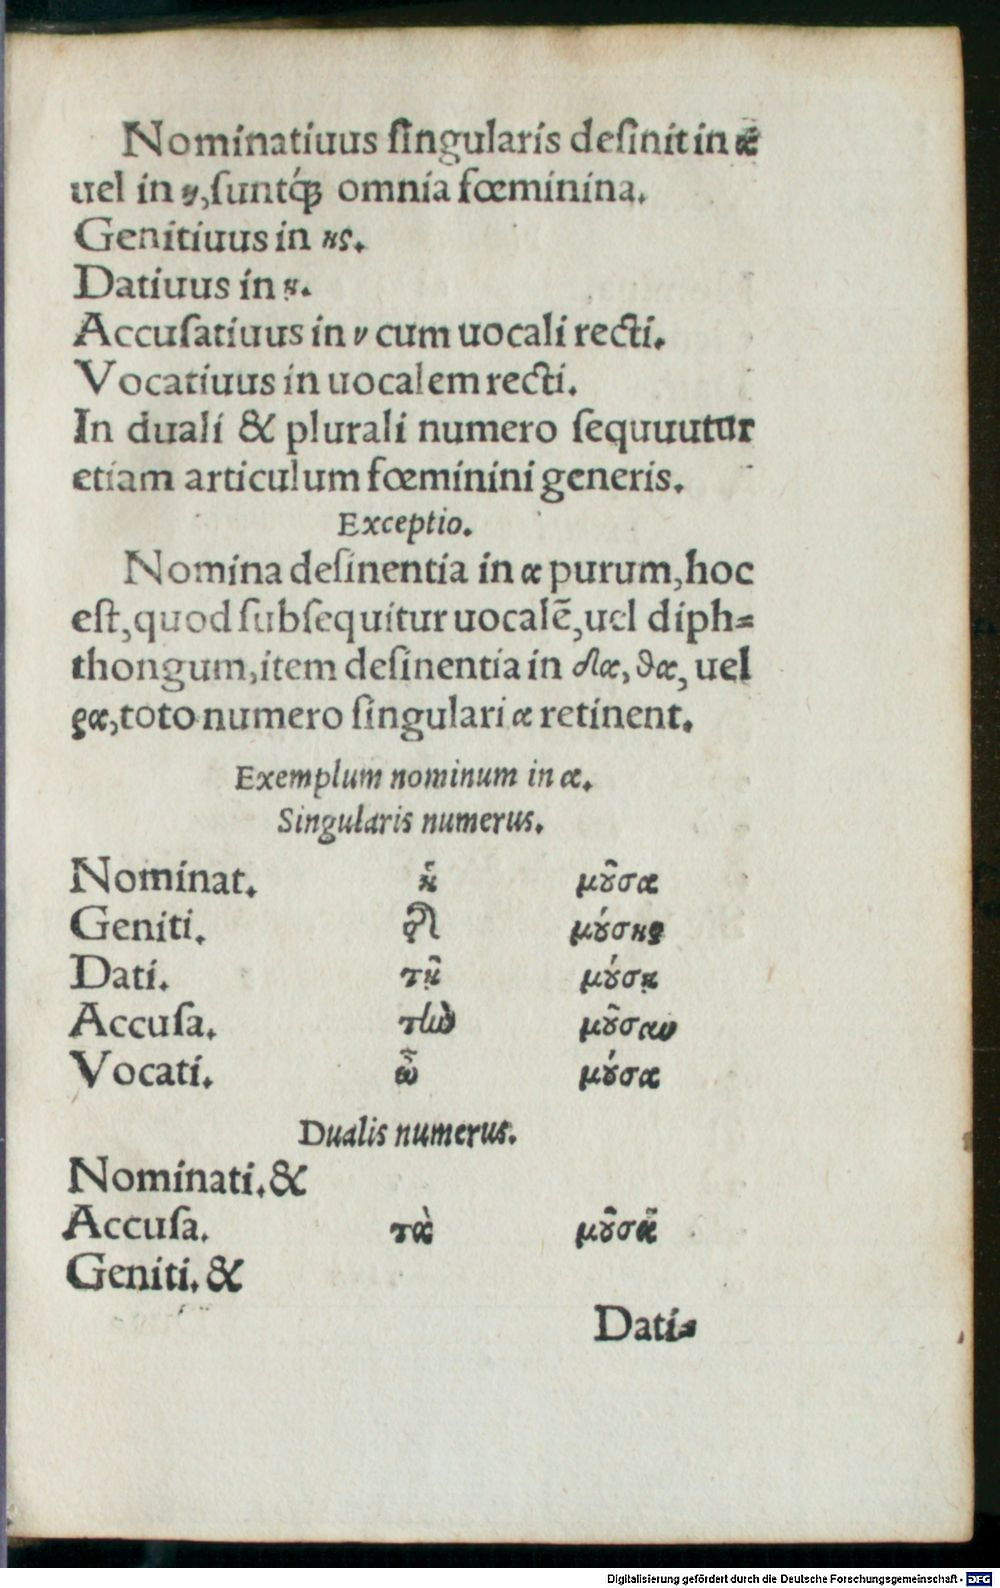 Nominatiuus ſingularis deſinit in α
uel in η, ſuntq́ꝫ omnia fœminina.
Genitiuus in ης.
Datiuus in ῃ.
Accuſatiuus in ν cum uocali recti.
Vocatiuus in uocalem recti.
In duali & plurali numero ſequuutur
etiam articulum fœminini generis.
Exceptio.
Nomina deſinentia in α purum, hoc
eſt, quod ſubſequitur uocalē, uel diph⸗
thongum, item deſinentia in δα, θα, uel
ρα, toto numero ſingulari α retinent.
Exemplum nominum in α.
Singularis numerus.
Nominat. ἡ μοῦσα
Geniti. τῆς μούσης
Dati. τῇ μούσῃ
Accuſa. τὴν μοῦσαν
Vocati. ὦ μούσα
Dualis numerus.
Nominati. &
Accuſa. τὰ μοῦσα
Geniti. &
Dati⸗
Digitalisierung gefördert durch die Deutsche Forschungsgemeinschaft - DFG